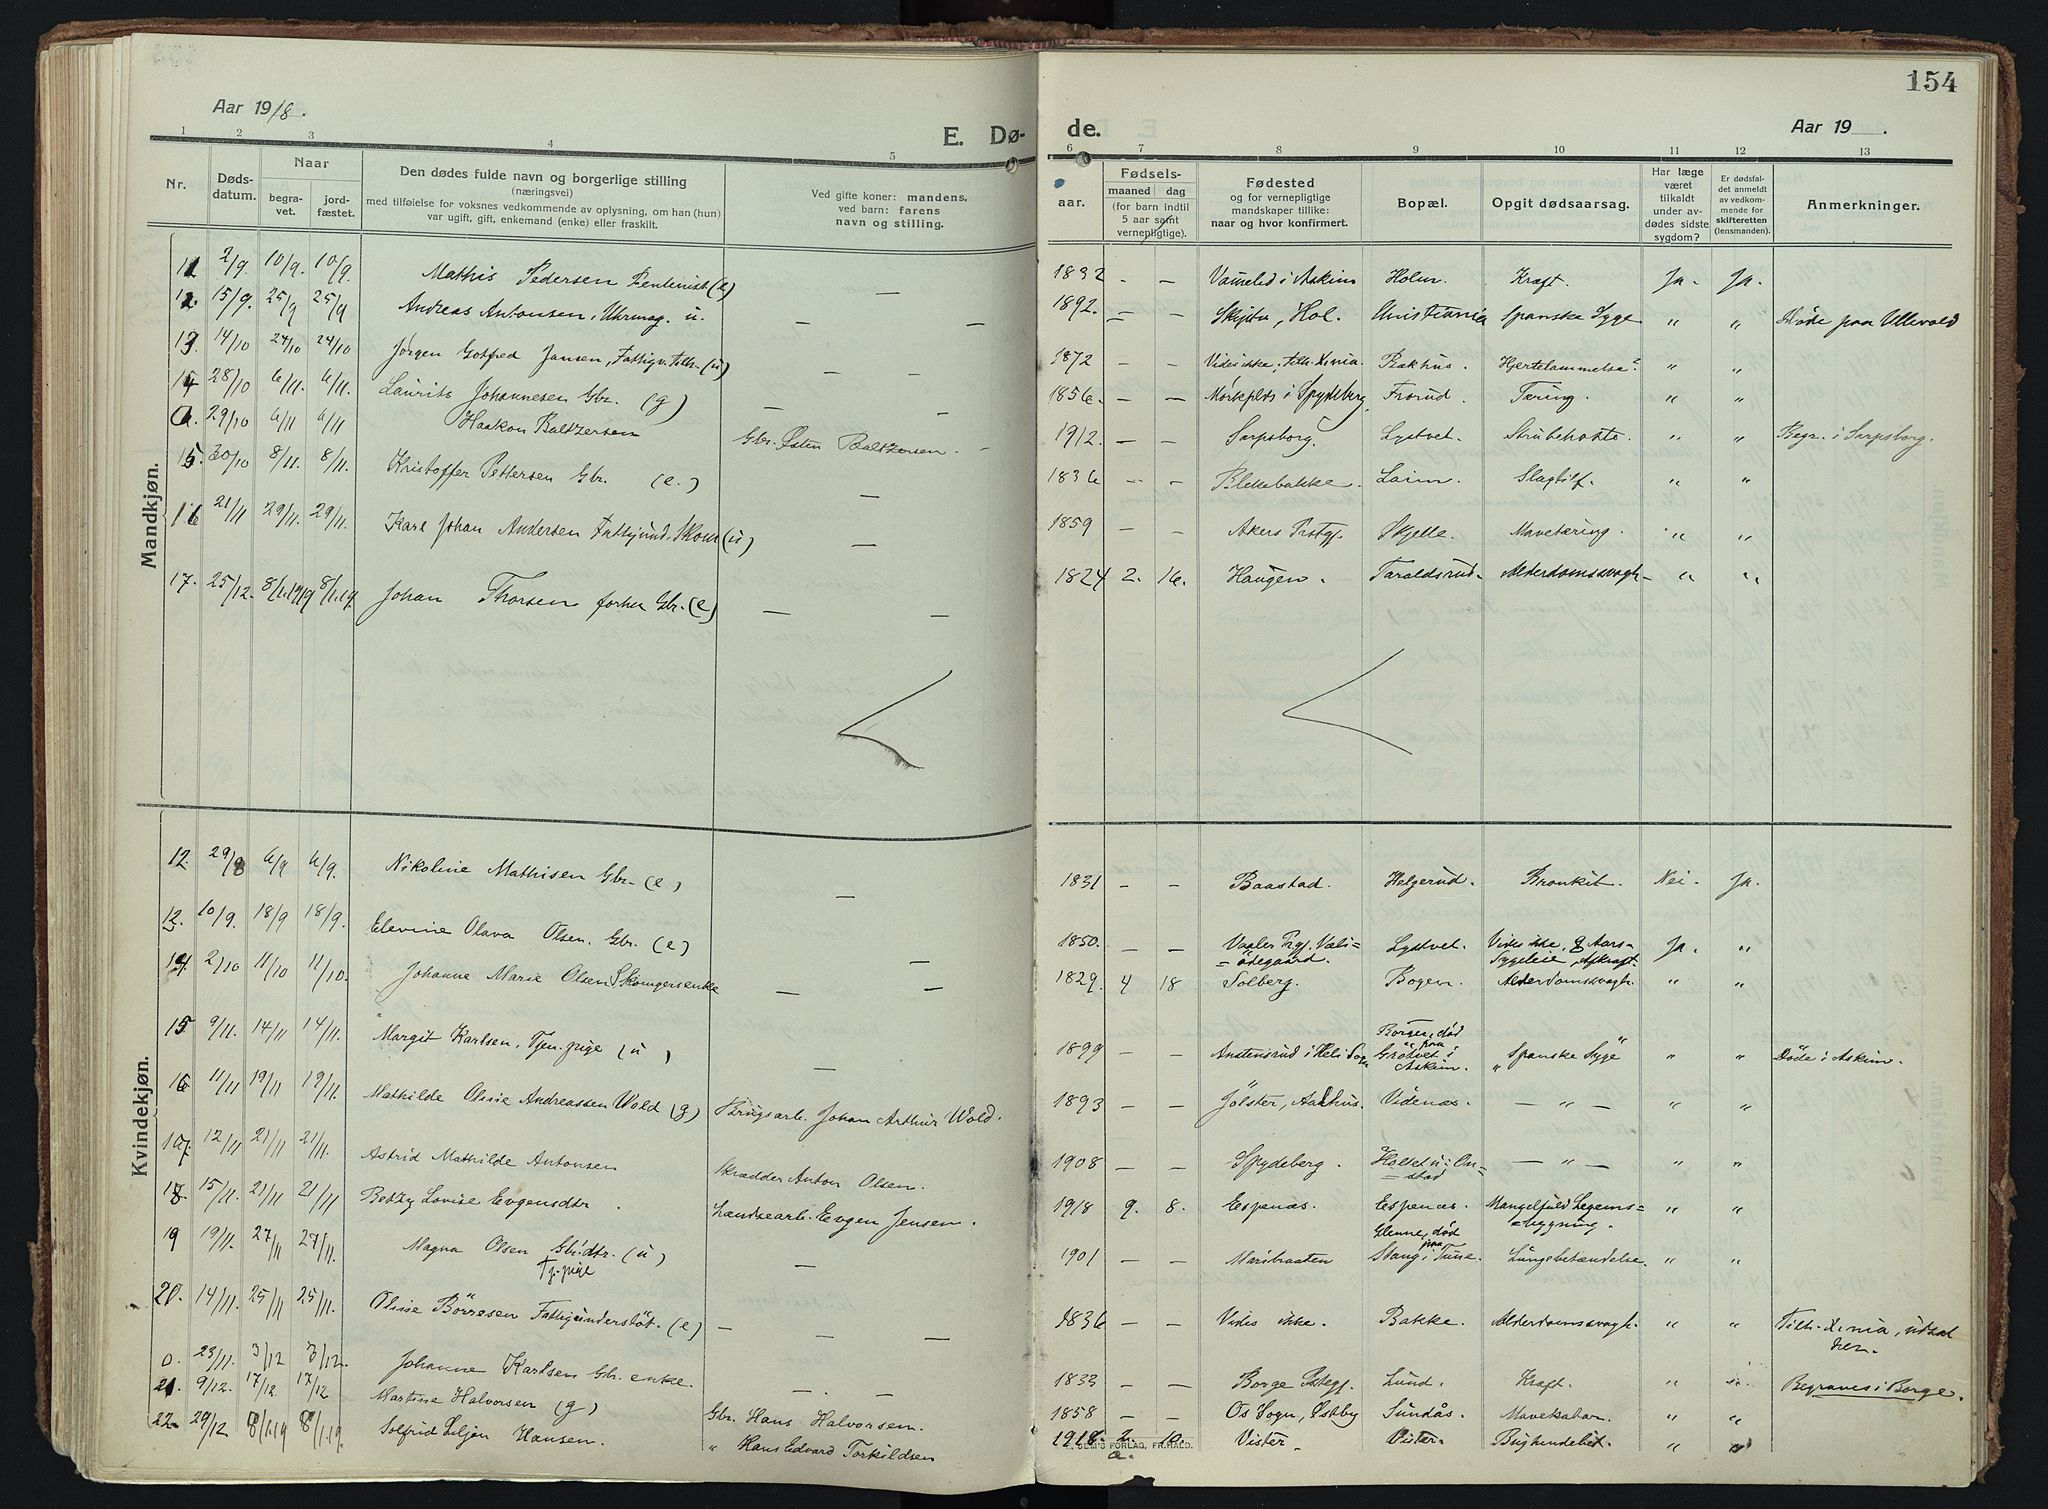 154
Aar 1918.
E. Dø-
de.
Aar 19 .
1 2 3 4 5
6 7 8 9 10 11 12 13
Nr.
Døds-
datum.
Naar
begra-
vet.
jord-
fæstet.
Den dødes fulde navn og borgerlige stilling
(næringsvei)
med tilføielse for voksnes vedkommende av oplysning, om han (hun)
var ugift, gift, enkemand (enke) eller fraskilt.
Ved gifte koner: mandens,
ved barn: farens
navn og stilling.
aar.
Fødsels-
maaned dag
(for barn indtil
5 aar samt
vernepligtige).
Fødested
og for vernepligtige
mandskaper tillike:
naar og hvor konfirmert.
Bopæl.
Opgit dødsaarsag.
Har læge
været
tilkaldt
under av-
dødes sidste
sygdom?
Er dødsfal-
det anmeldt
av vedkom-
mende for
skifteretten
(lensmanden).
Anmerkninger.
Mandkjøn.
11 2/9. 10/9. 10/9. Mathis Pedersen (e) — 1832 — — i Askim Holm. Kræft. Ja. Ja.
12 15/9. 25/9 25/9 Andreas Antonsen, Uhrmag. u. — — 1892. — — Hol. Kristiania Spanske Syge " " Døde paa Ullevold
13 14/10 24/10 24/10 Jørgen Gotfred Jansen, (u) — — 1872 — — Vides ikke, Bækhus. Hjertelammelse? " "
14 28/10 6/11. 6/11. Laurits Johannesen Gbr. (g) — — 1856. — — i Spydeberg Frorud. Tæring. " "
0. 29/10 6/11 6/11 Haakon Baltzersen Gbr. Østen Baltzersen. 1912. — — Sarpsborg. Lystvet. Strubehoste. " " Begr. i Sarpsborg.
15. 30/10 8/11. 8/11. Kristoffer Pettersen Gbr. (e.) — 1836 — — Blekebakke. Laim. Slagtilf. " "
16 21/11 29/11. 29/11. Karl Johan Andersen (u) — 1859 — — Akers Prstgj. Skjelle. Mavetæring. " "
17. 25/12. 8/1.1919 8/1.19. Johan Thorsen forhv Gbr. (e) — — 1824 2. 16. Haugen. Taraldsrud. Alderdomssvagh. " "
Kvindekjøn.
12. 29/8 6/9 6/9. Nikoline Mathisen Gbr. (e) — 1831 — — Baastad. Helgerud. Bronkit. Nei. Ja.
13. 10/9. 18/9 18/9. Elevine Olava Olsen. Gbr. (e) — 1850. — — Vaaler Prgj.
=ødegaard. Lystvet. Vides ikke, 8 Aars=
Sygeleie, Afkraft. Ja. "
14 2/10 11/10 11/10. Johanne Marie Olsen — — 1829. 4 18 Solberg. Bogen. Alderdomssvagh. " "
15. 9/11. 14/11 14/11. Margit Karlsen, Tjen. pige (u) — 1899 — — i Heli Sogn Borgen, død
paa
Grøtvet i
Askim. Spanske Syge " " Døde i Askim.
16 11/11 19/11 19/11. Mathilde Oline Andreassen Wold (g) Brugsarb. Johan Arthur Wold. 1893 — — Jølster, Aalhus. Videnæs. — " — " "
17. 12/11 21/11 21/11. Astrid Mathilde Antonsen Skrædder Anton Olsen. 1908 — — Spydeberg. Holtet u. i On=
=stad — " — " "
18. 15/11. 21/11 21/11 Betzy Lovise Evgensdtr. Landsearb. Evgen Jensen. 1918 9. 8. Espenæs. Espenæs. Mangelfuld Legems=
=bygning. " "
19 19/11. 27/11 27/11. Magna Olsen Gbr.dtr. (u)
Tj. pige — 1901 — — Maribraaten Glenne, død
paa
Stang i Tune. Lungebetændelse. " "
20. 14/11. 25/11 25/11. Oline Børresen Fattigunderstøt. (e) — — 1836 — — Vides ikke. Bakke. Alderdomssvagh. " " Tilh. Kr.nia, udsat
her.
0. 23/11. 3/12 3/12. Johanne Karlsen Gbr. enke. — — 1833 — — Borge Prstegj. Lund. Kræft. " " Begraves i Borge.
21. 9/12. 17/12 17/12 Martine Halvorsen (g) Gbr. Hans Halvorsen. 1858 — — Os Sogn, Østby Sundås. Mavekatar. " "
22. 29/12 8/1.19 8/1.19. Solfrid Liljan Hansen. " Hans Edvard Torkildsen 1918 2. 10. Vister. Vister. Bughindebet. " "
FORLAG, FR.HALD.